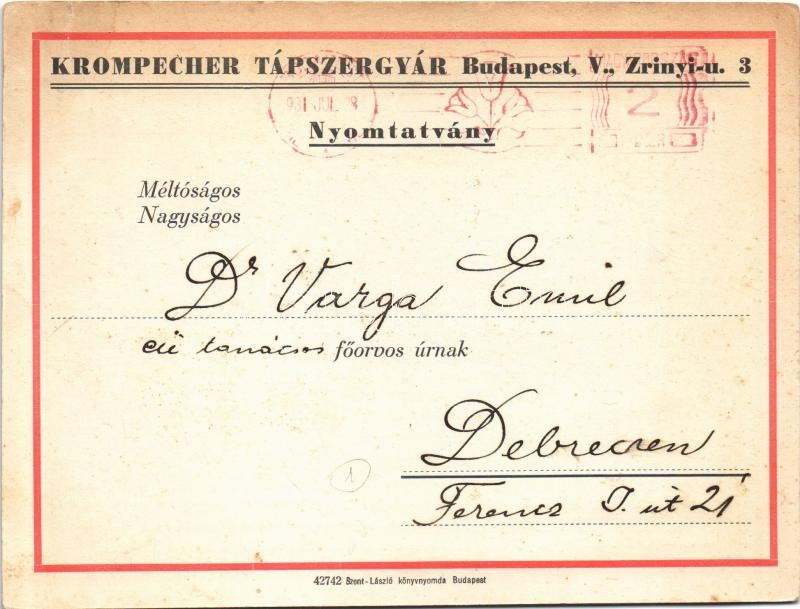 KROMPECHER TÁPSZERGYÁR Budapest, V., Zrinyi-u. 3
931 JUL. 28
2
Nyomtatvány
Méltóságos
Nagyságos
Dr Varga Emil
eü tanácsos főorvos úrnak
Debreczen
Ferencz J. út 21
1
42742 Szent-László könyvnyomda Budapest